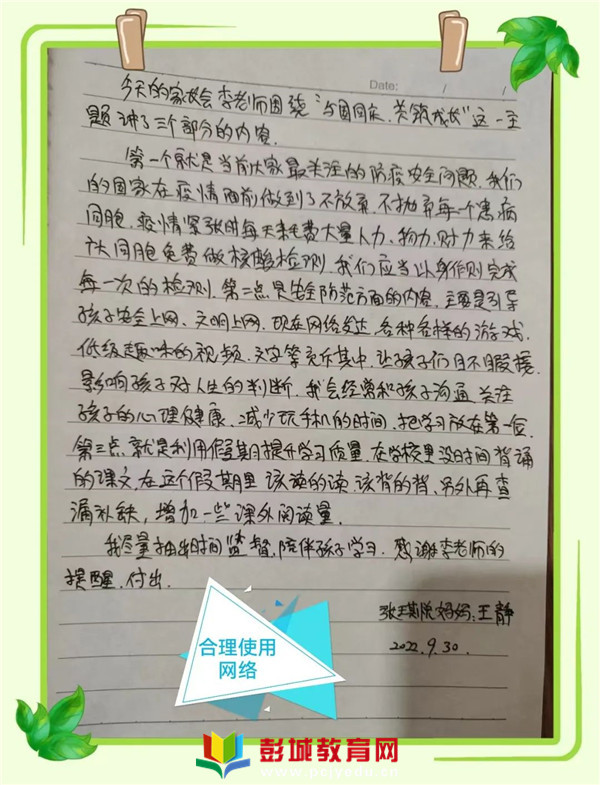 Date: / /
今天的家长会李老师围绕“与国同庆、关筑成长”这一主
题讲了三个部分的内容.
第一个就是当前大家最关注的防疫安全问题.我们
的国家在疫情面前做到了不放弃.不抛弃每一个患病
同胞.疫情紧张时每天耗费大量人力.物力.财力来给
大同胞免费做核酸检测.我们应当以身作则完成
每一次的检测.第二点是安全防范方面的内容.主要是引导
孩子安全上网、文明上网.现在网络发达.各种各样的游戏.
低级趣味的视频.文字等充斥其中.让孩子们目不暇接.
影响孩子对人生的判断.我会经常和孩子沟通.关注
孩子的心理健康.减少玩手机的时间.把学习放在第一位.
第三点.就是利用假期提升学习质量.在学校里没时间背诵
的课文.在这个假期里该读的读.该背的背.另外再查
漏补缺,增加一些课外阅读量.
我尽量抽出时间监督.陪伴孩子学习.感谢李老师的
提醒.付出.
张琪悦妈妈:王静
2022.9.30.
合理使用
网络
彭城教育网